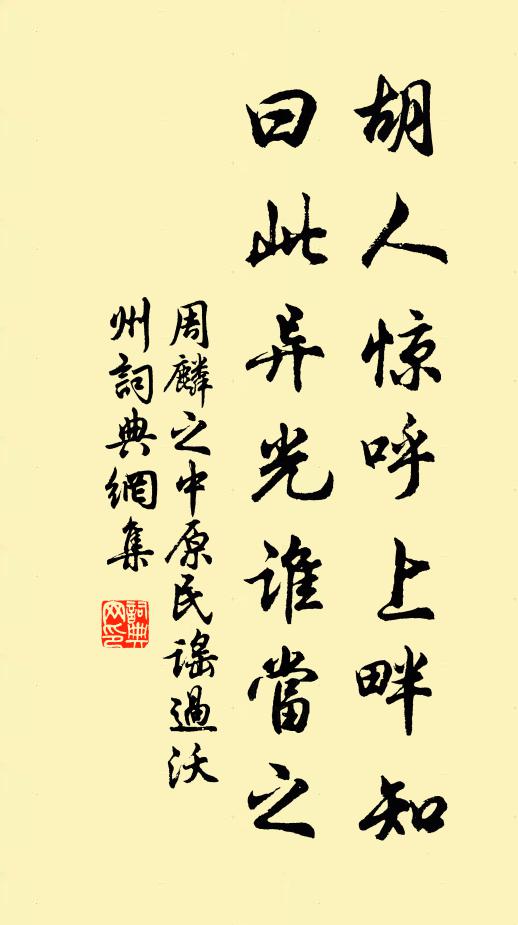 胡人惊呼上畔知
曰此异光谁當之
周麟之中原民谣過沃
州詞典網集
詞典
网印